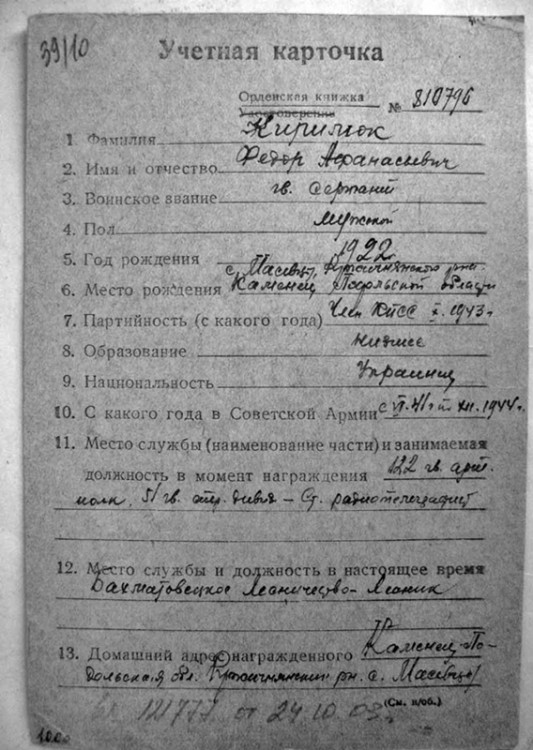 39/10
Учетная карточка
Орденская книжка
Удостоверение № 810796
1 Фамилия Киримюк
2. Имя и отчество Федор Афанасьевич
3. Воинское звание гв. сержант
4. Пол мужской
5. Год рождения 1922
с. Масівці,
6. Место рождения Каменец Подольской области
7. Партийность (с какого года) Член КПСС с 1943 г
8. Образование низшее
9. Национальность Украинец
10. С какого года в Советской Армии с VI.41 г по XII.1944 г.
11. Место службы (наименование части) и занимаемая
должность в момент награждения 122 гв. арт.
полк, 51 гв. стр. дивиз – Ст. радиотелеграфист
12. Место службы и должность в настоящее время
Бахматовецкое Лесничество - Лесник
13. Домашний адрес награжденного Каменец-По-
дольская обл. рн. с. Масівці
(См. н/об.)
121777 от 24.10.03